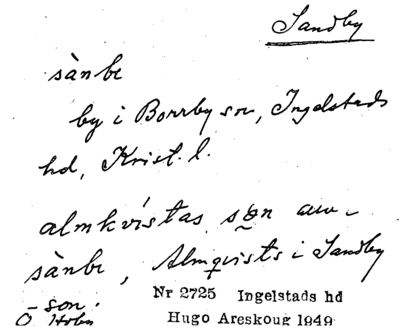 Sandby
sànbe
by i Borrby sn, Ingelstads
hd, Krist. l.
almkvistas søn aw
sànbe, Almqvists i Sandby
- son.
Nr 2725 Ingelstads hd
Ö Hoby Hugo Areskoug 1949